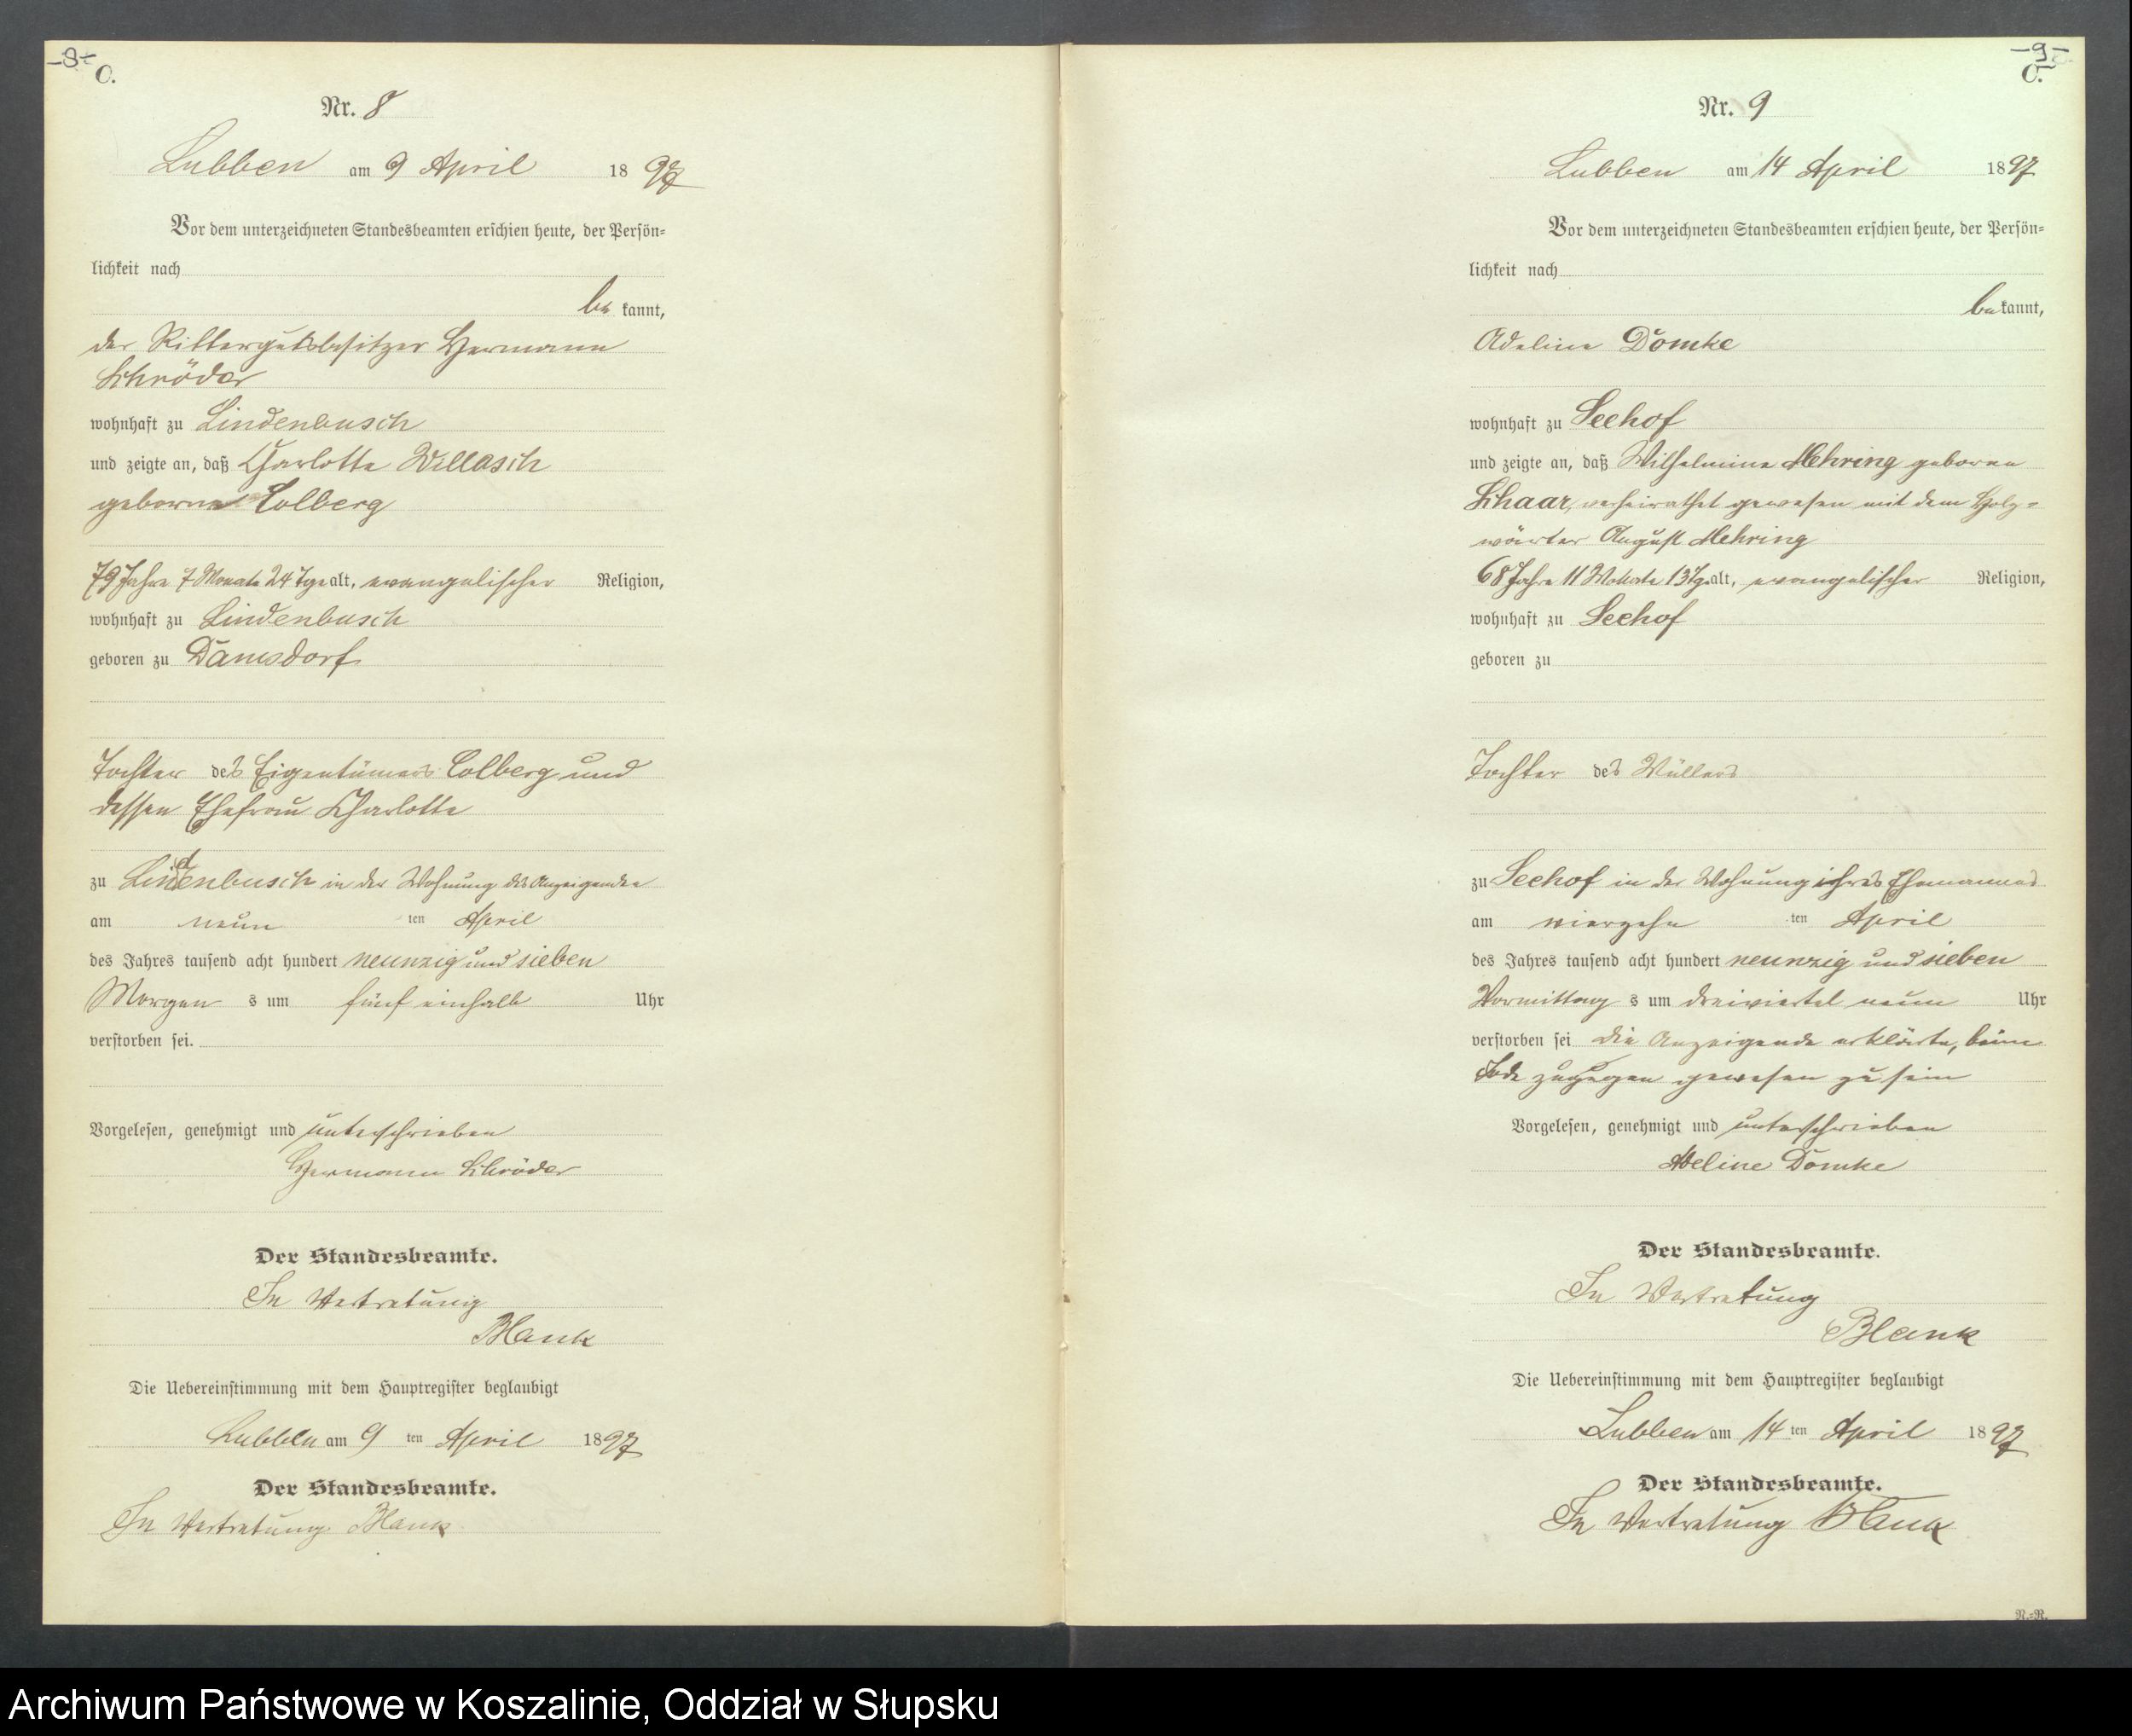 -8-
C.
Nr. 8
Lubben am 9 April 1897
Vor dem unterzeichneten Standesbeamten erschien heute, der Persön-
lichkeit nach
bekannt,
der Rittergutsbesitzer Hermann
Schröder
wohnhaft zu Lindenbusch
und zeigte an, daß Charlotte Willasch
geborne Colberg
79 Jahre 7 Monate 24 Tge alt, evangelischer Religion,
wohnhaft zu Lindenbusch
geboren zu Damsdorf
Tochter des Eigentümers Colberg und
dessen Ehefrau Charlotte
zu Lindenbusch in der Wohnung des Anzeigenden
am neun ten April
des Jahres tausend acht hundert neunzig und sieben
Morgen s um fünf einhalb Uhr
verstorben sei.
Vorgelesen, genehmigt und unterschrieben
Hermann Schröder
Der Standesbeamte.
In Vertretung
Blank
Die Uebereinstimmung mit dem Hauptregister beglaubigt
Lubben am 9 ten April 1897
Der Standesbeamte.
In Vertretung Blank
-9-
C.
Nr. 9
Lubben am 14 April 1897
Vor dem unterzeichneten Standesbeamten erschien heute, der Persön-
lichkeit nach
bekannt,
Adeline Domke
wohnhaft zu Seehof
und zeigte an, daß Wilhelmine Mehring geborene
Schaar, verheirathet gewesen mit dem Holz-
wärter August Mehring
68 Jahre 11 Monate 13 Tg. alt, evangelischer Religion,
wohnhaft zu Seehof
geboren zu
Tochter des Müllers
zu Seehof in der Wohnung ihres Ehemannes
am vierzehn ten April
des Jahres tausend acht hundert neunzig und sieben
Vormittag s um dreiviertel neun Uhr
verstorben sei die Anzeigende erklärte, beim
Tode zugegen gewesen zu sein
Vorgelesen, genehmigt und unterschrieben
Adeline Domke
Der Standesbeamte.
In Vertretung
Blank
Die Uebereinstimmung mit dem Hauptregister beglaubigt
Lubben am 14 ten April 1897
Der Standesbeamte.
In Vertretung Blank
N.-R.
Archiwum Państwowe w Koszalinie, Oddział w Słupsku